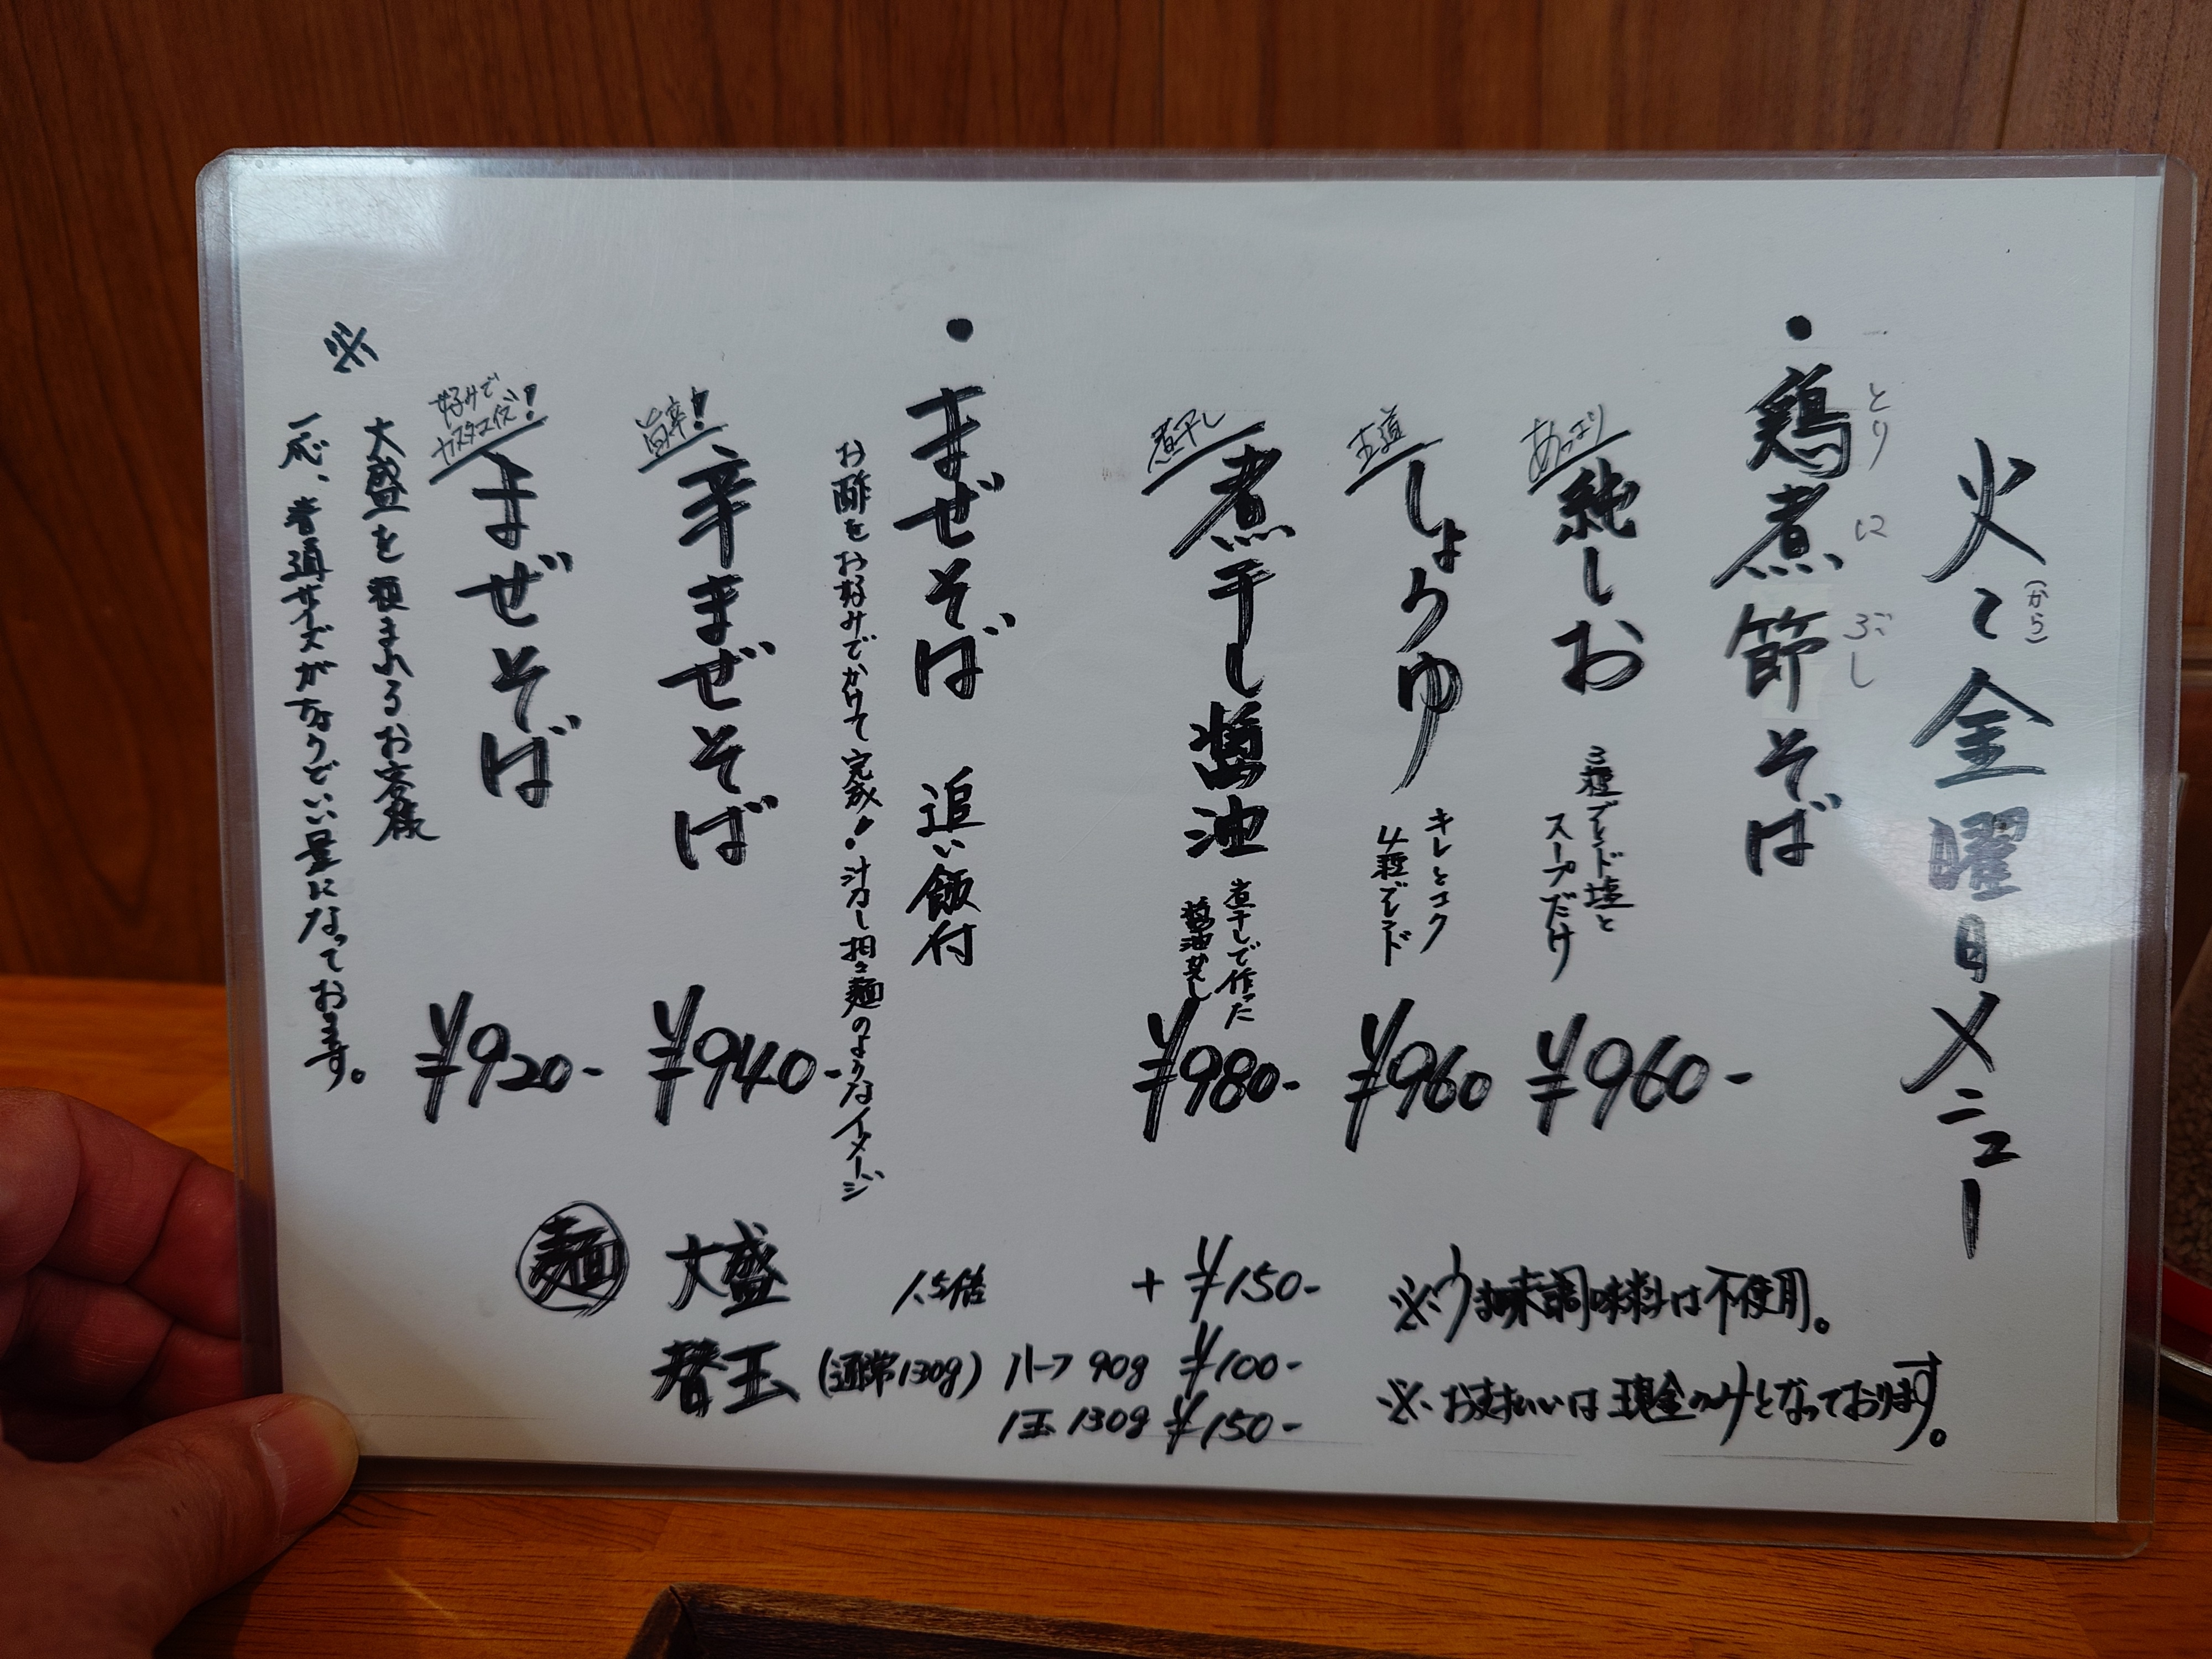 火〜金曜日メニュー
(から)
・鶏煮節そば
とり に ぶし
あっさり
純しお
3種ブレンド塩と
スープだけ
¥960-
王道
しょうゆ
キレとコク
4種ブレンド
¥960
煮干し
煮干し醤油
煮干しで作った
醤油だし
¥980-
・まぜそば 追い飯付
お酢をお好みでかけて完成!汁なし担々麺のようなイメージ
旨辛!
辛まぜそば
¥940-
好みで
カスタマイズ!
まぜそば
¥920-
※
大盛を頼まれるお客様
一応、普通サイズがちょうどいい量になっております。
麺 大盛 1.5倍 +¥150-
替玉 (通常130g) ハーフ 90g ¥100-
1玉 130g ¥150-
※うま味調味料は不使用。
※お支払いは現金のみとなっております。